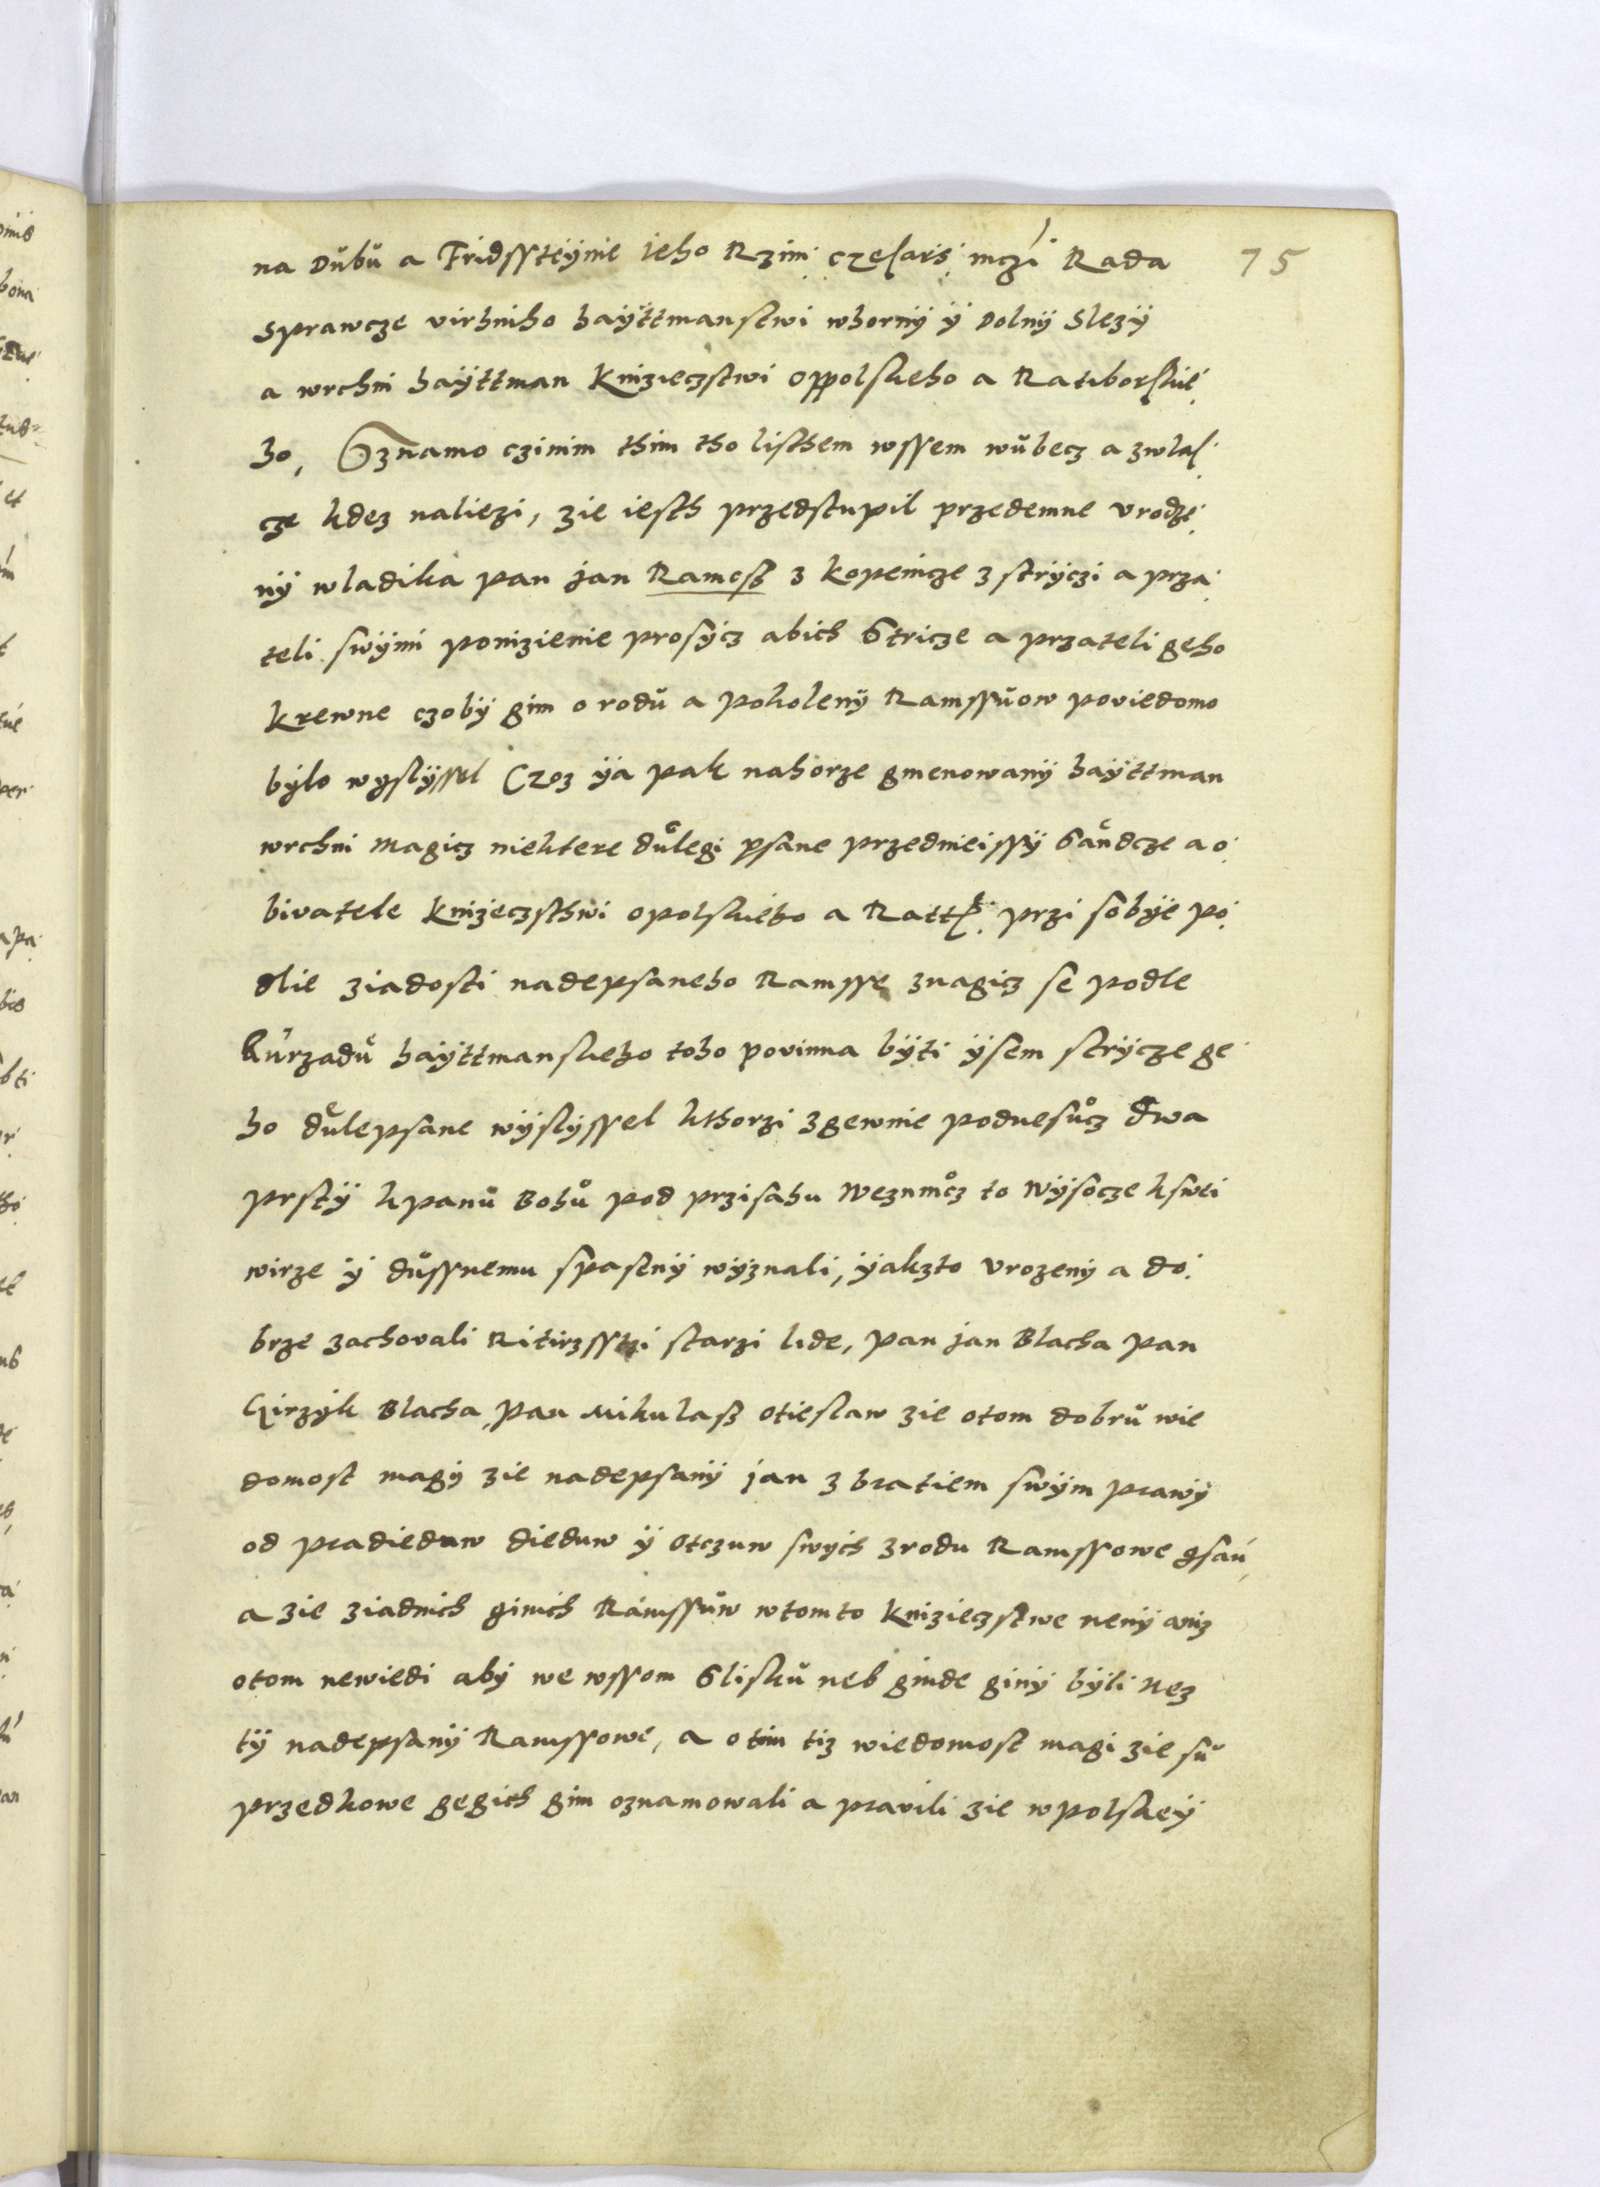 75
na Dŭbŭ a Fridssteÿnie ieho Rzim: czesars: mczi Rada
Sprawcze virhniho haÿttmanstwi whornÿ ÿ Dolnÿ Slezÿ
a wrchni haÿttman Knizieczstwi oppolskeho a Ratiborskie:
ho, Oznamo czinim thim tho listhem wssem wŭbecz a zwlas:
cze kdez naliezi, zie iesth przedstupil przedemne vrodze:
nÿ wladika pan jan Ramcsz z Kopenicze z strÿczi a prza:
teli swÿmi ponizienie prosÿcz abich Stricze a przateli geho
krewne czobÿ gim o rodŭ a pokolenÿ Ramssŭow poviedomo
bÿlo wyslÿssel Czoz ÿa pak nahorze gmenowanÿ haÿttman
wrchni magicz niektere dŭlegi psane przednieissÿ Saudcze a o:
bivatele Knizeczsthwi opolskieho a Ratt: przi sobÿe po:
dlie ziadosti nadepsaneho Ramsse znagicz se podle
Aŭrzadŭ haÿttmanskeho toho povinna bÿti ÿsem strÿcze ge
ho dŭlepsane wÿslÿssel kthorzi zgewnie podnesŭcz dwa
prstÿ kpanŭ Bohŭ pod przisahu Weznmŭcz to Wÿsocze kswei
wirze ÿ dŭssnemu spasenÿ wÿznali, ÿakzto vrozenÿ a do:
brze zachovali Ritirzsstzi starzi lide, pan jan Blacha pan
Girzÿk Blacha, pan Mikulasz otieslaw zie otom dobrŭ wie
domost magÿ zie nadepsanÿ jan z bratiem swÿm prawÿ
od pradieduw dieduw ÿ Otczuw swÿch zrodu Ramssowe gsau
a zie ziadnich ginich Ramssŭw wtomto Knizieczstwe nenÿ aniz
otom newiedi abÿ we wssom Slisku neb ginde ginÿ bÿli Nez
tÿ nadepsanÿ Ramssowe, a otim tiz wiedomost magi zie sŭ
przedkowe gegich gim oznamowali a pravili zie wpolskeÿ